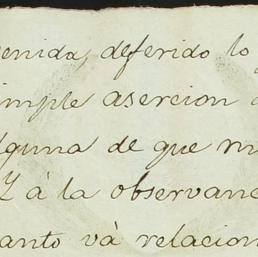 enida, deferido lo
imple asercion
lguna de que
á la observanc
anto vá relacion